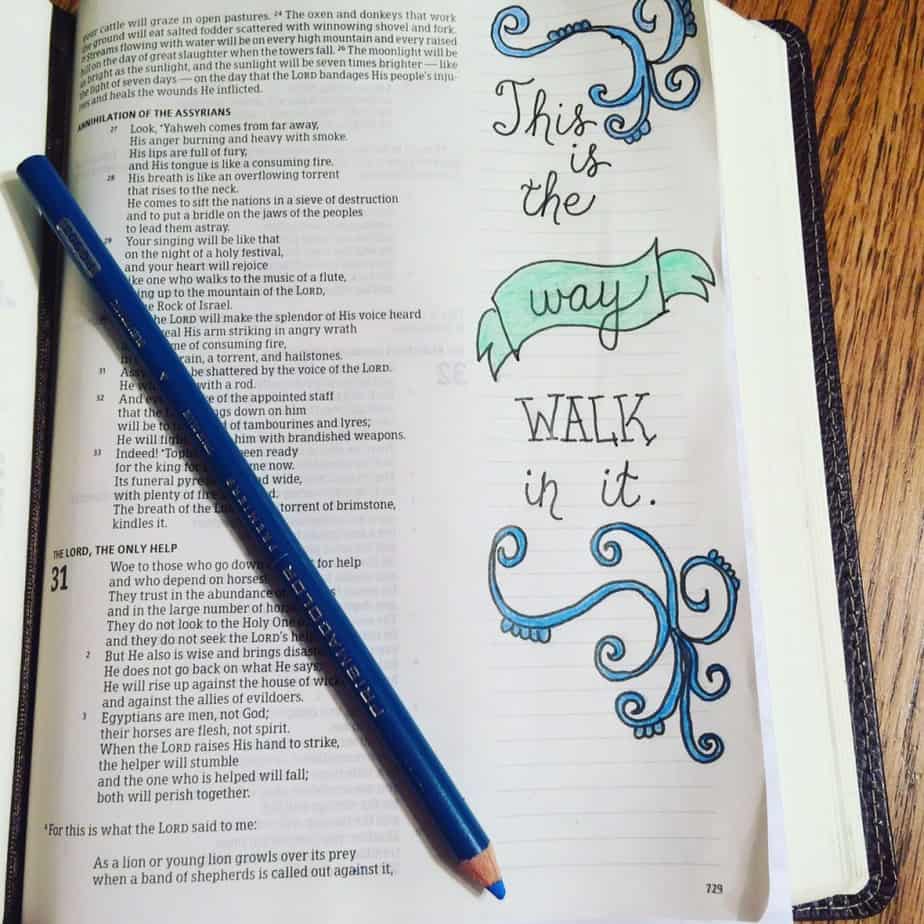 your cattle will graze in open pastures. 24 The oxen and donkeys that work
the ground will eat salted fodder scattered with winnowing shovel and fork.
Streams flowing with water will be on every high mountain and every raised
hill on the day of great slaughter when the towers fall. 26 The moonlight will be
as bright as the sunlight, and the sunlight will be seven times brighter — like
the light of seven days — on the day that the LORD bandages His people's inju-
ries and heals the wounds He inflicted.
ANNIHILATION OF THE ASSYRIANS
27 Look, Yahweh comes from far away,
His anger burning and heavy with smoke.
His lips are full of fury,
and His tongue is like a consuming fire.
28 His breath is like an overflowing torrent
that rises to the neck.
He comes to sift the nations in a sieve of destruction
and to put a bridle on the jaws of the peoples
to lead them astray.
29 Your singing will be like that
on the night of a holy festival,
and your heart will rejoice
like one who walks to the music of a flute,
ing up to the mountain of the LORD,
e Rock of Israel.
the LORD will make the splendor of His voice heard
eal His arm striking in angry wrath
me of consuming fire,
rain, a torrent, and hailstones.
31 Assy be shattered by the voice of the LORD.
He with a rod.
32 And e ke of the appointed staff
that the ngs down on him
will be to d of tambourines and lyres;
He will fight him with brandished weapons.
33 Indeed! Toph een ready
for the king for me now.
Its funeral pyre d wide,
with plenty of fire d.
The breath of the torrent of brimstone,
kindles it.
THE LORD, THE ONLY HELP
31 Woe to those who go down for help
and who depend on horses
They trust in the abundance
and in the large number of
They do not look to the Holy One
and they do not seek the LORD's help
2 But He also is wise and brings disaster
He does not go back on what He says;
He will rise up against the house of
and against the allies of evildoers.
3 Egyptians are men, not God;
their horses are flesh, not spirit.
When the LORD raises His hand to strike,
the helper will stumble
and the one who is helped will fall;
both will perish together.
4 For this is what the LORD said to me:
As a lion or young lion growls over its prey
when a band of shepherds is called out against it,
729
This
is
the
way
WALK
in it.
PRISMACOLOR PREMIER